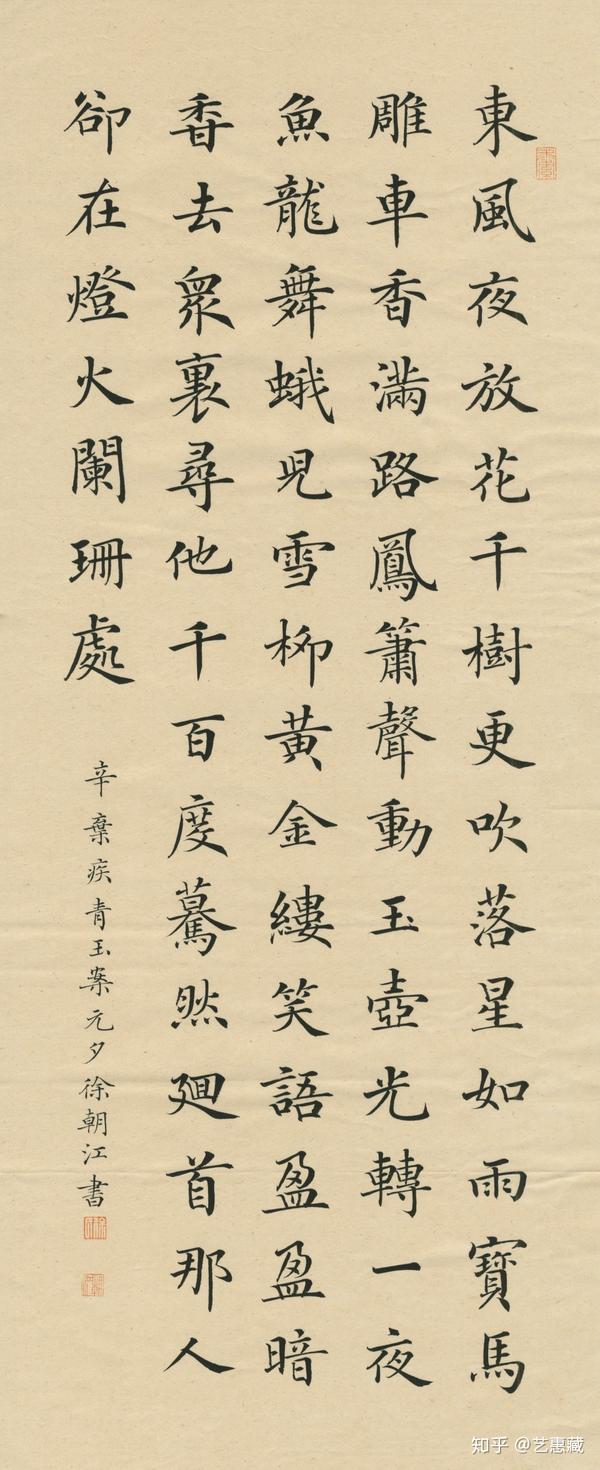 東風夜放花千樹更吹落星如雨寶馬
雕車香滿路鳳簫聲動玉壺光轉一夜
魚龍舞蛾兒雪柳黃金縷笑語盈盈暗
香去眾裏尋他千百度驀然廻首那人
卻在燈火闌珊處
辛棄疾青玉案元夕徐朝江書
知乎 @艺惠藏